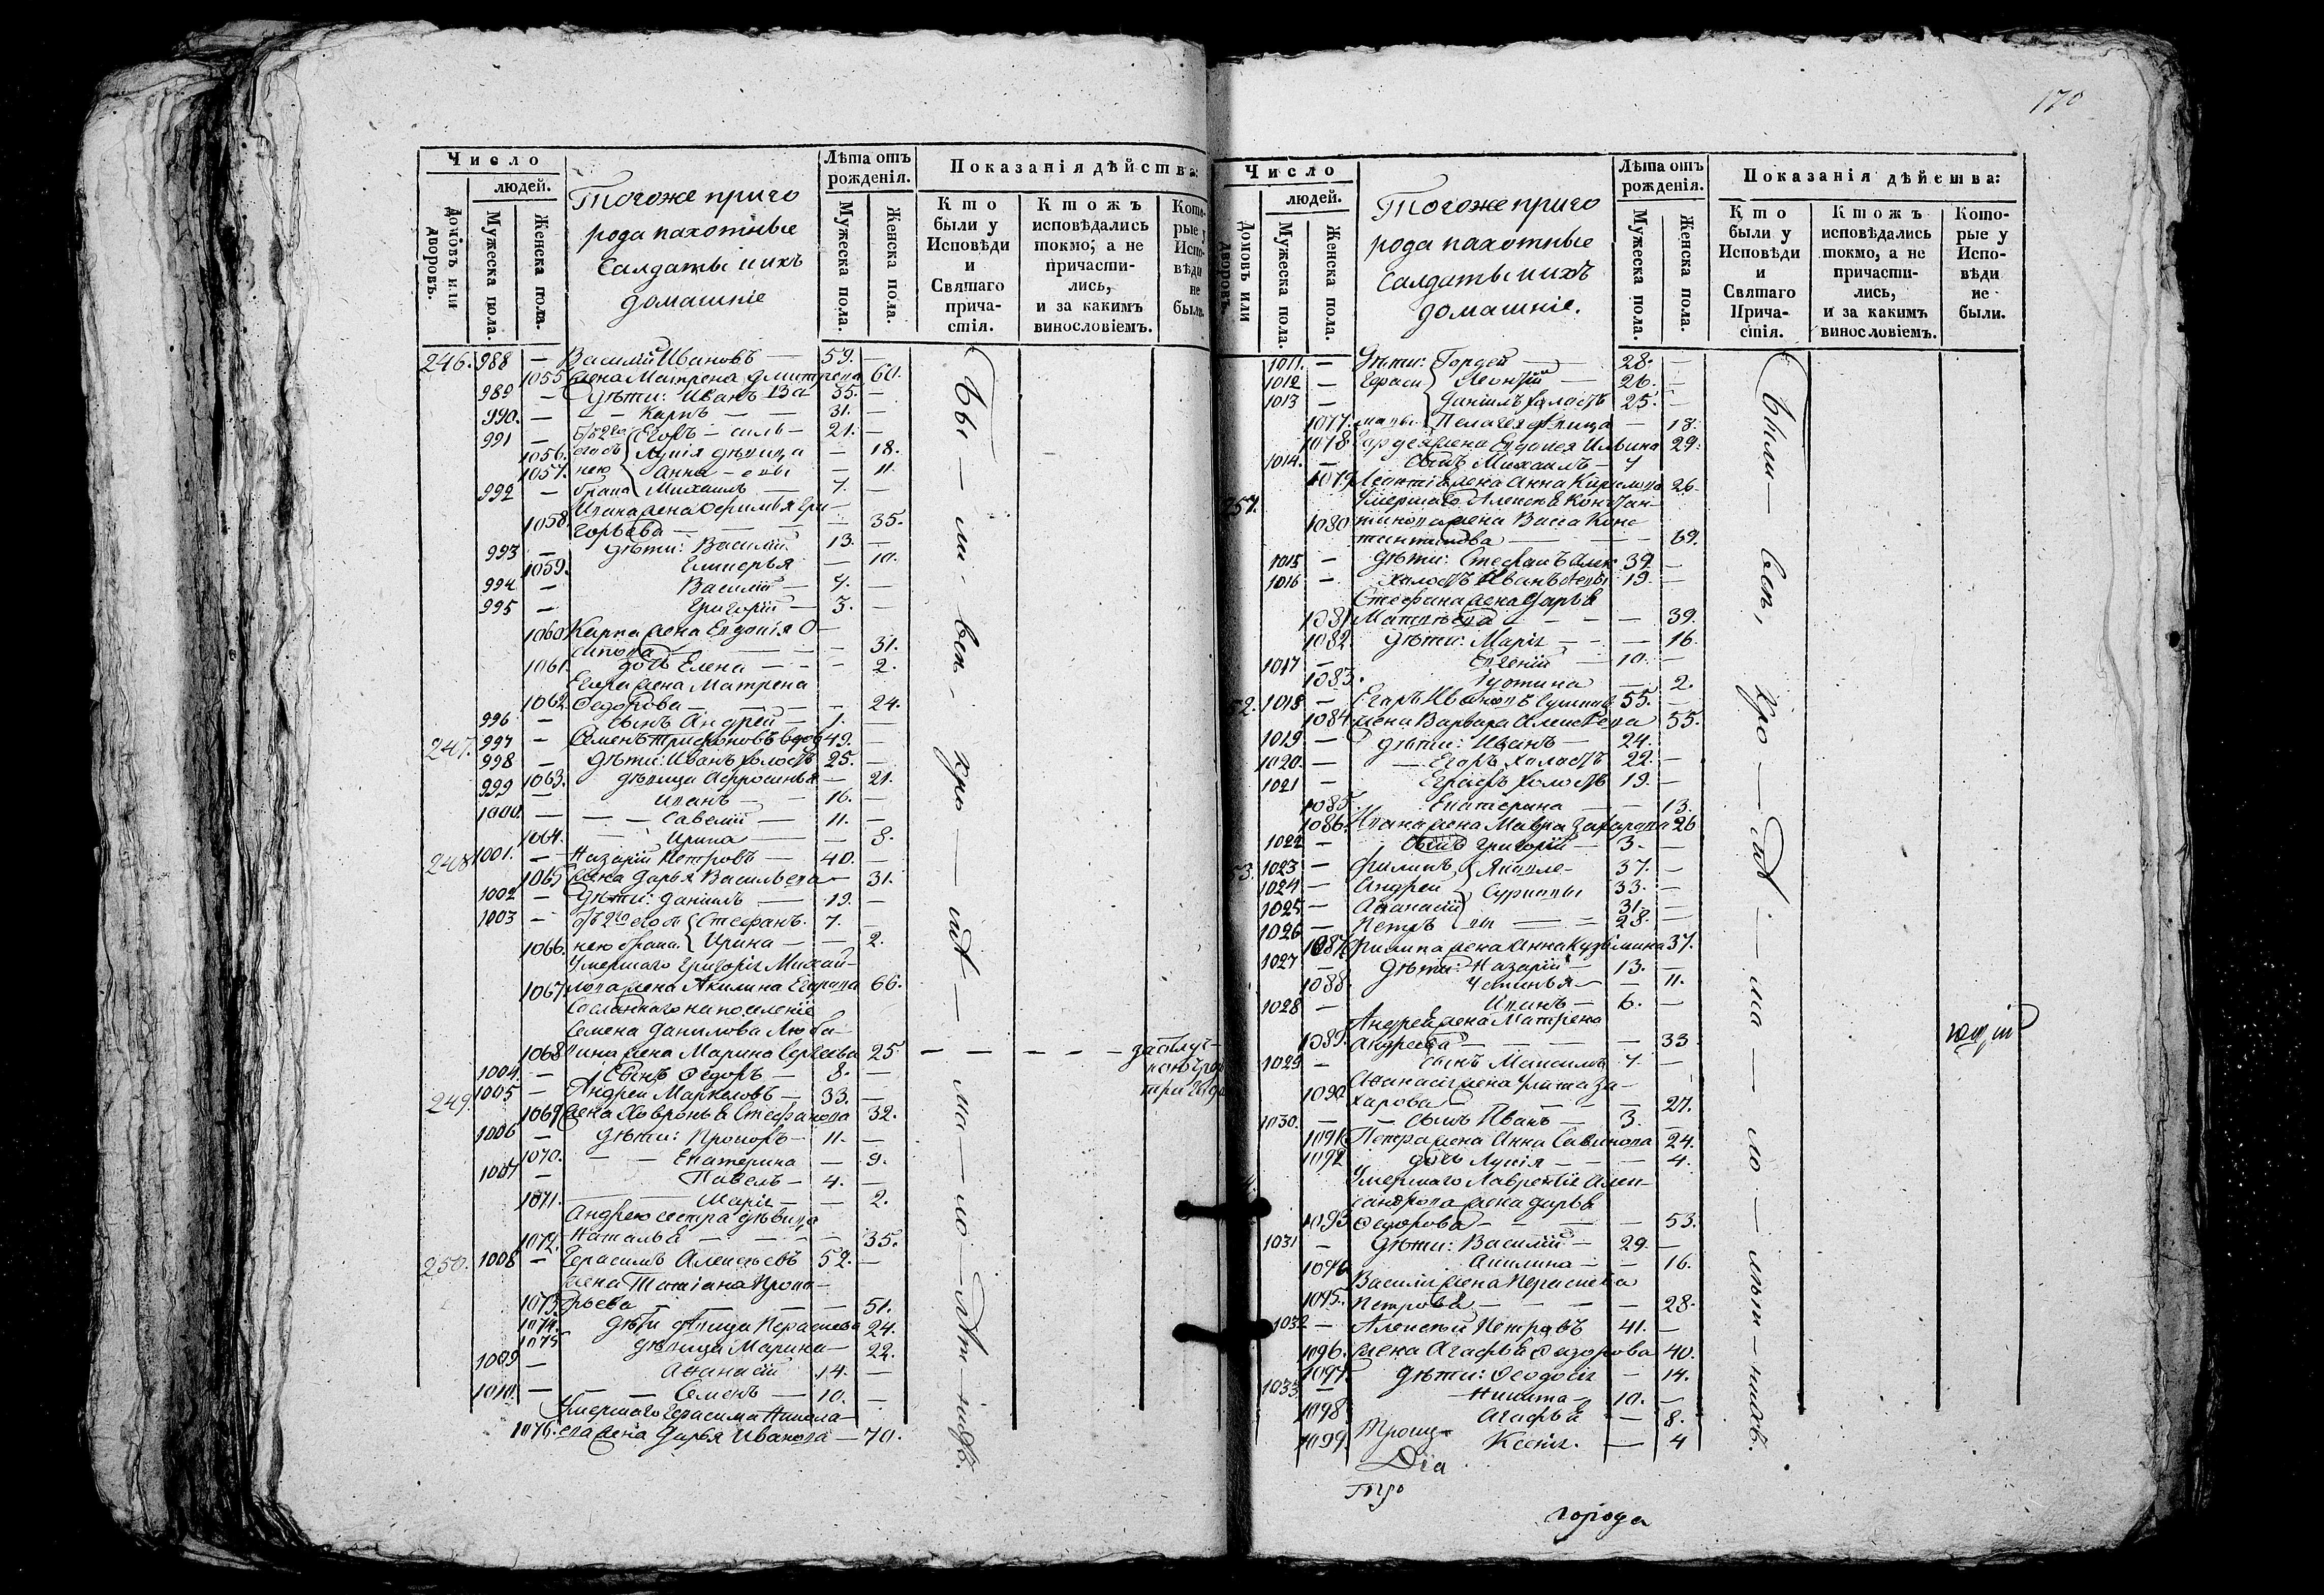 Число
людей.
Домовъ или дворовъ.
Мужеска пола.
Женска пола.
Тогоже приго
рода пахотные
Салдаты и ихъ
домашніе
Лѣта отъ
рожденія.
Мужеска пола.
Женска пола.
Показанія дѣйства:
Кто
были у
Исповѣди
и
Святаго
прича-
стія.
Ктожъ
исповѣдались
токмо, а не
причасти-
лись,
и за какимъ
винословіемъ.
Кото-
рые у
Испо-
вѣди
не
были.
246. 988 — Василій Ивановъ — 59. —
1055 жена Матрена Дмитрева 60.
989 — дѣти: Иванъ 35. —
990. — — Карпъ — — 31. —
991 — Егоръ — 21. —
1056. Лукія дѣвица — 18.
1057. нею Анна — — 11.
992 — брака Михаилъ — 7. —
Ивана жена Ефимья Гри-
1058. горьева — — — 35.
993 — дѣти: Василій 13. —
1059. — 10.
994 — Василій — 7. —
995 — Григорій — 3. —
1060. Карпа жена Евдокія О-
сипова — — — 31.
1061. дочь Елена — — — 2.
Егора жена Матрена
1062 Федорова — — — 24.
996 — сынъ Андрей — 1. —
247. 997 — Семенъ Трифоновъ вдов 49. —
998 — дѣти: Иванъ холостъ 25. —
1063. дѣвица Афросинья — 21.
999 — Иванъ — — 16. —
1000. — — — Савелій — 11. —
1064. — Ирина — — 8.
248 1001. — Назарій Петровъ — 40. —
1065 жена Дарья Васильева — 31.
1002 — дѣти: Даніилъ — 19. —
1003 — Стефанъ. 7. —
1066. нею брака. Ирина — — 2.
Умершаго Григорія Михай-
1067 лова жена Акилина Егорова 66.
Сосланнаго на поселеніе
Семена Данилова Люба-
1068 жена Марина Сергеева 25 — — — — —
1004 — Сынъ Федоръ — 8. —
249. 1005 — Андрей Маркеловъ — 33. —
1069 жена Хавронья Стефанова 32.
1006 — дѣти: Прокоръ — 11. —
1070. — — Екатерина — 9.
1007 — Павелъ — 4. —
1071. Марія — — 2.
Андрею сестра дѣвица
1072. Наталья — — — — 35.
250. 1008 — Герасимъ Алексѣевъ 52. —
жена Татіана Проко-
1073. фьева — — — — 51.
1074. дѣти дѣвица Параскева 24.
1075 дѣвица Марина — 22.
1009 — Афанасій 14. —
1010. — — Семенъ — 10. —
Умершаго Герасима Никола-
1076. ева жена Дарья Иванова — 70.
Бы — ли — всѣ
170
Число
людей.
Домовъ или дворовъ.
Мужеска пола.
Женска пола.
Тогоже приго
рода пахотные
Салдаты и ихъ
домашніе.
Лѣта отъ
рожденія.
Мужеска пола.
Женска пола.
Показанія дѣйства:
Кто
были у
Исповѣди
и
Святаго
Прича-
стія.
Ктожъ
исповѣдались
токмо, а не
причасти-
лись,
и за какимъ
винословіемъ.
Кото-
рые у
Испо-
вѣди
не
были.
1011. — Дѣти: Гордей — 28. —
1012 — Леонтій — 26. —
1013 — Даніилъ холостъ 25. —
1077. Пелагея дѣвица — 18.
1078. Гордея жена Евдокея Ильина 29.
1014. — Сынъ Михаилъ — 7
1079 Леонтія жена Анна Кирилова 26
251. Умершаго Алексѣя Констан-
1080 тинова жена Васса Конс
тантинова — — 69.
1015 — Дѣти: Стефанъ 39 —
1016 — холостъ Иванъ 19. —
Стефана жена Дарья
1081 Матвѣева — — — 39.
1082. дѣти: Марія — — — 16.
1017 — Евгеній — 10. —
1083. Устина — 2.
52. 1018 — Егоръ Ивановъ 55. —
1084 жена Варвара Алексѣева 55.
1019 — дѣти: Иванъ — 24.
1020. — — Егоръ холостъ 22. —
1021 — Ефрафъ холостъ 19. —
1085. Екатерина — — 13.
1086. Ивана жена Мавра Захарова 26
1022 — Сынъ Григорій — 3. —
53. 1023 — Филипъ Яковле- 37. —
1024 — Андрей 33. —
1025 — Афанасій 31. —
1026 — Петръ 28. —
1087 Филипа жена Анна Кузьмина 37.
1027 — дѣти: Назарій — 13. —
1088. Устинья — — 11.
1028 — Иванъ — 6. —
Андрея жена Матрена
1089. Андреева — — — — 33
1029 — Сынъ Максимъ 7. —
Афанасія жена Улита За-
1090. харова — — — 27.
1030. — — Сынъ Иванъ — 3. —
1091. Петра жена Анна Савинова 24.
1092 дочь Лукія — — — 4.
Умершаго Лаврентія Алек-
сандрова жена Дарья
1093 Федорова — — — 53.
1031 — Дѣти: Василій — 29. —
1094 Акилина — — 16.
Василія жена Параскева
1095. Петрова — — — — 28.
1032 — Алексѣй Петровъ 41. —
1096. жена Агафья Федорова 40.
1097. дѣти: Феодосія — 14.
1033 — Никита — 10. —
1098 Агафья — 8.
1099. Ксенія. — 4
Были — всѣ
Троиц-
Dia
города